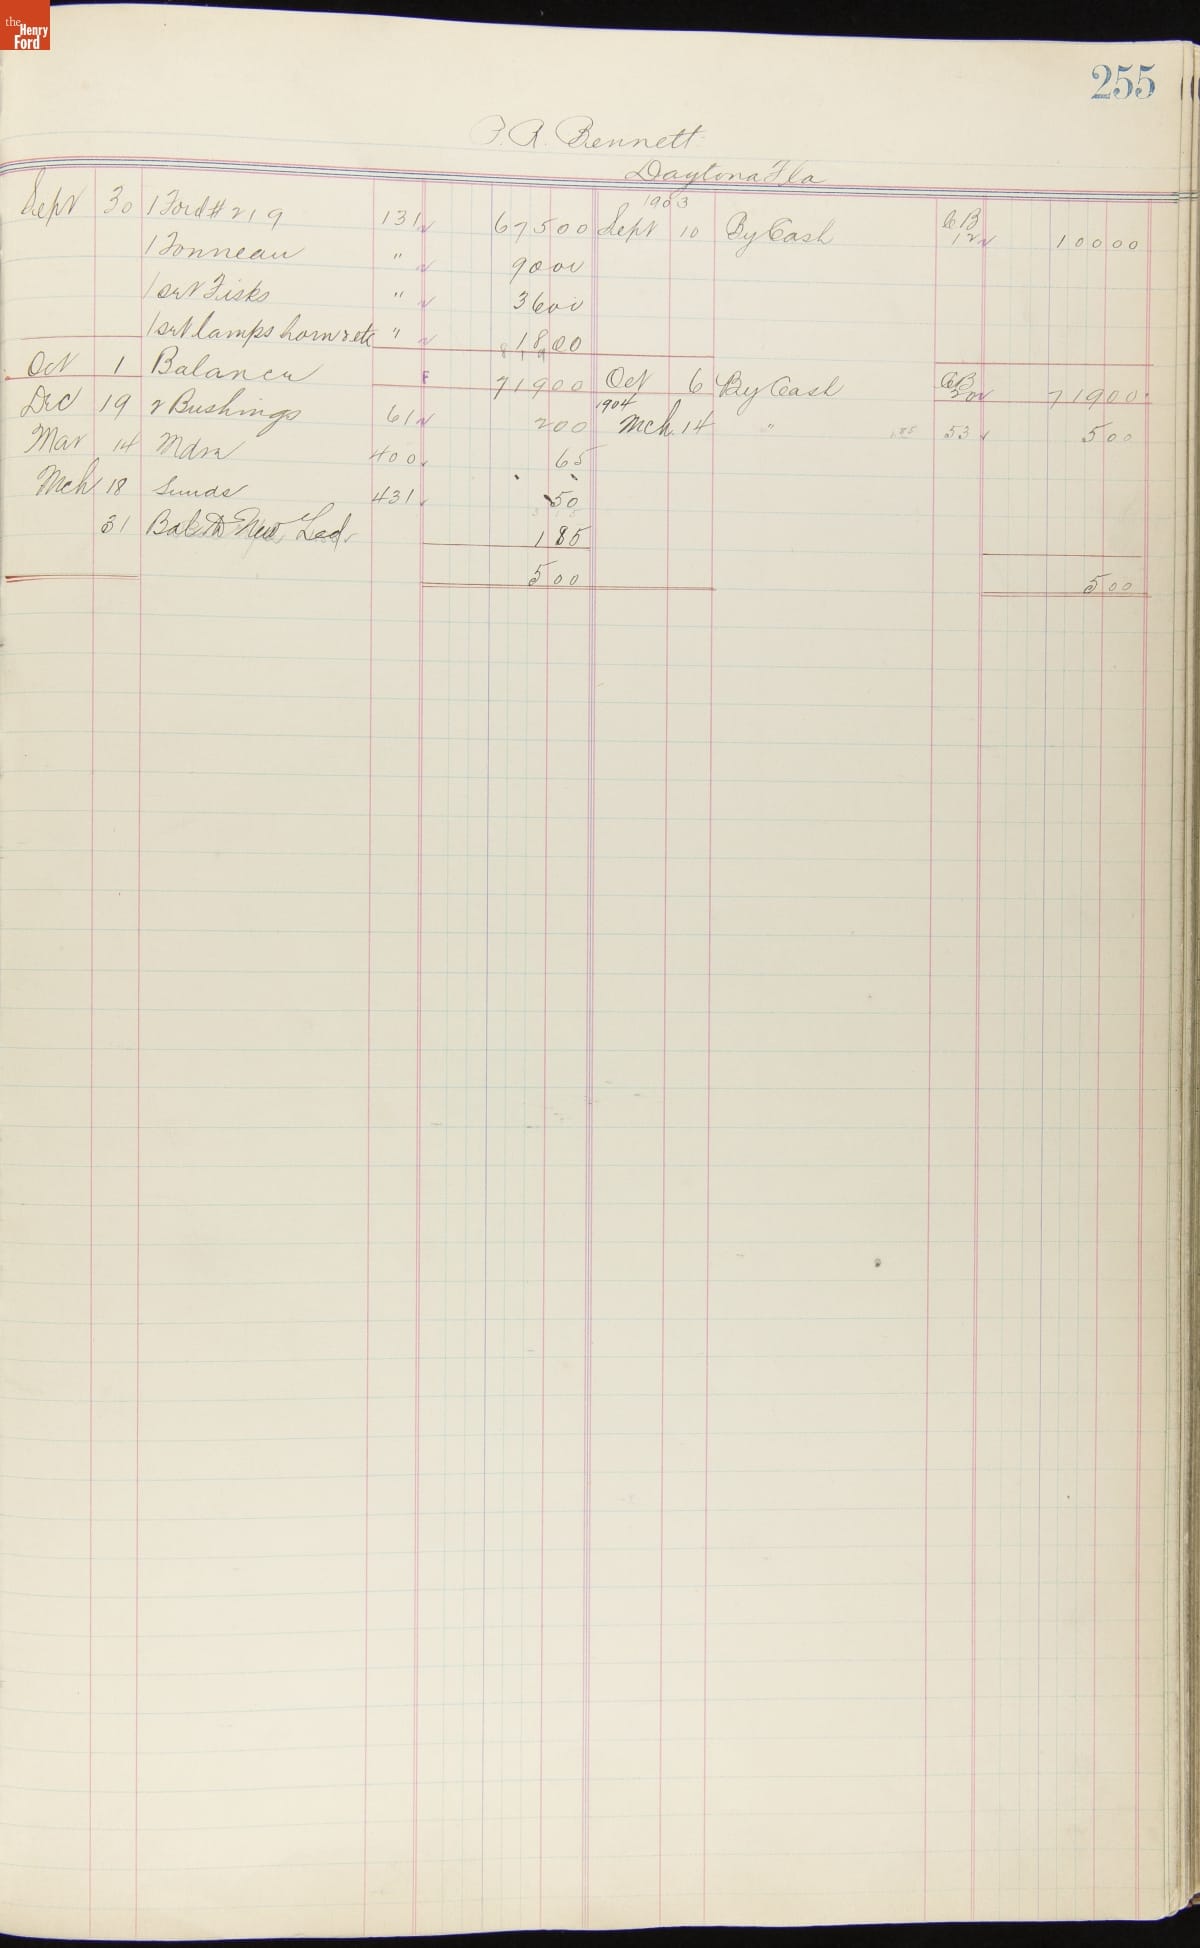 the Henry Ford
255
Bennett
Daytona Fla
1903
Sept 30 1 Ford # 219 131 675 00 Sept 10 By Cash CB 12 100 00
1 Tonneau " 90 00
1 set Fisks " 36 00
1 set lamps horn & etc " 18 00
819
Oct 1 Balance F 719 00 Oct 6 By Cash CB 20 719 00
1904
Dec 19 2 Bushings 61 2 00 Mch 14 " 1.85 53 5 00
Mar 14 Mdse 400 65
Mch 18 Sunds 431 50
31 Bal to New Led. 1 85
5 00 5 00